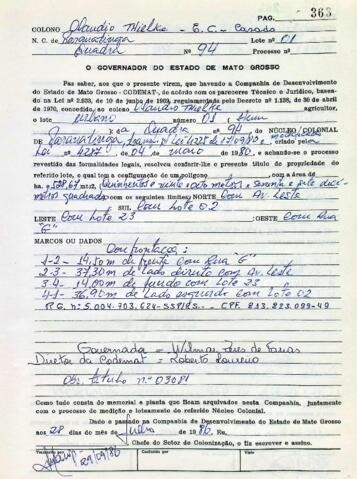 PAG. 363
COLONO Claudio Thielke - E.C. - Casado
N. C. de Paranatinga Lote nº 01
Quadra Nº 94 Processo nº
O GOVERNADOR DO ESTADO DE MATO GROSSO
Faz saber, aos que o presente virem, que havendo a Companhia de Desenvolvimento
do Estado de Mato Grosso - CODEMAT, de acordo com os pareceres Técnico e Jurídico, basea-
do na Lei nº 2.933, de 10 de junho de 1969, regulamentada pelo Decreto Nº 1.138, de 30 de abril
de 1970, concedido ao colono Claudio Thielke, agricultor,
o lote urbano número 01 (Hum)
Quadra nº 94 do NÚCLEO COLONIAL
DE Paranatinga criado pela
Lei nº 4277 de 04 de maio de 1980, e achando-se o processo
revestido das formalidades legais, resolveu conferir-lhe o presente título de propriedade do
referido lote, o qual tem a configuração de um polígono com a área de
ha = 528,67 mt2,
com os seguintes limites: NORTE Com Av. Leste
SUL Com Lote 02
LESTE Com Lote 23 ; OESTE Com Rua
"G"
MARCOS OU DADOS
Confrontações:
1-2 - 14,50 m de frente com Rua G"
2-3 - 37,30 m de lado direito com Av. Leste
3-4 - 14,00 m de fundo com Lote 23
4-1 - 36,90 m de Lado esquerdo com Lote 02
R.G. nº: 5.004.703.624-SSP/RS - CPF 213.223.099-49
Governador - Wilmar Peres de Farias
Diretor da Codemat - Roberto Loureiro
Obs. título nº 03081
Como tudo consta do memorial e planta que ficam arquivados nesta Companhia, juntamente
com o processo de medição e loteamento do referido Núcleo Colonial.
Dado e passado na Companhia de Desenvolvimento do Estado de Mato Grosso
aos 28 dias do mês de Julho de 1986. Eu,
Chefe do Setor de Colonização, o fiz escrever e assino.
Transcrito por Conferido por Visto
29/07/86